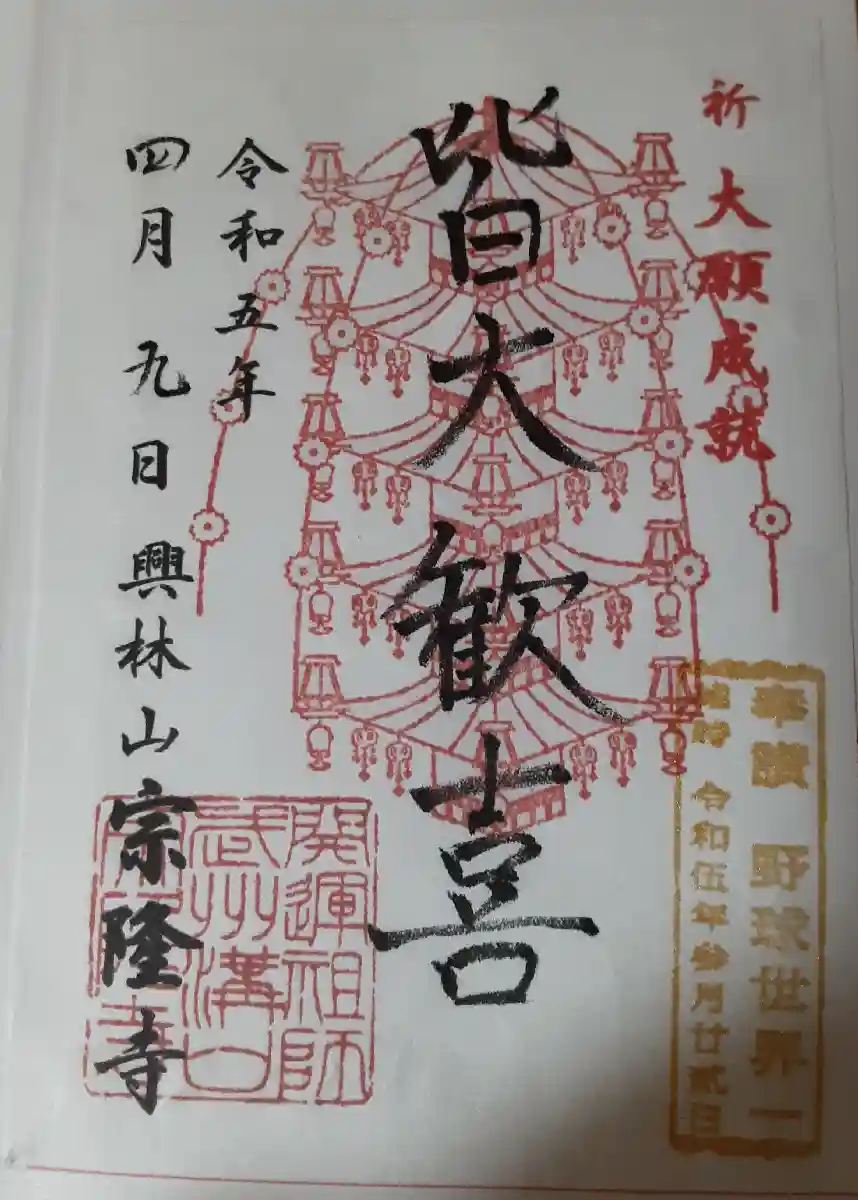 祈 大願成就
奉讃 野球世界一
時 令和伍年参月廿貳日
皆大歓喜
令和五年
四月 九日 興林山 宗隆寺
開運祖師
武州溝口